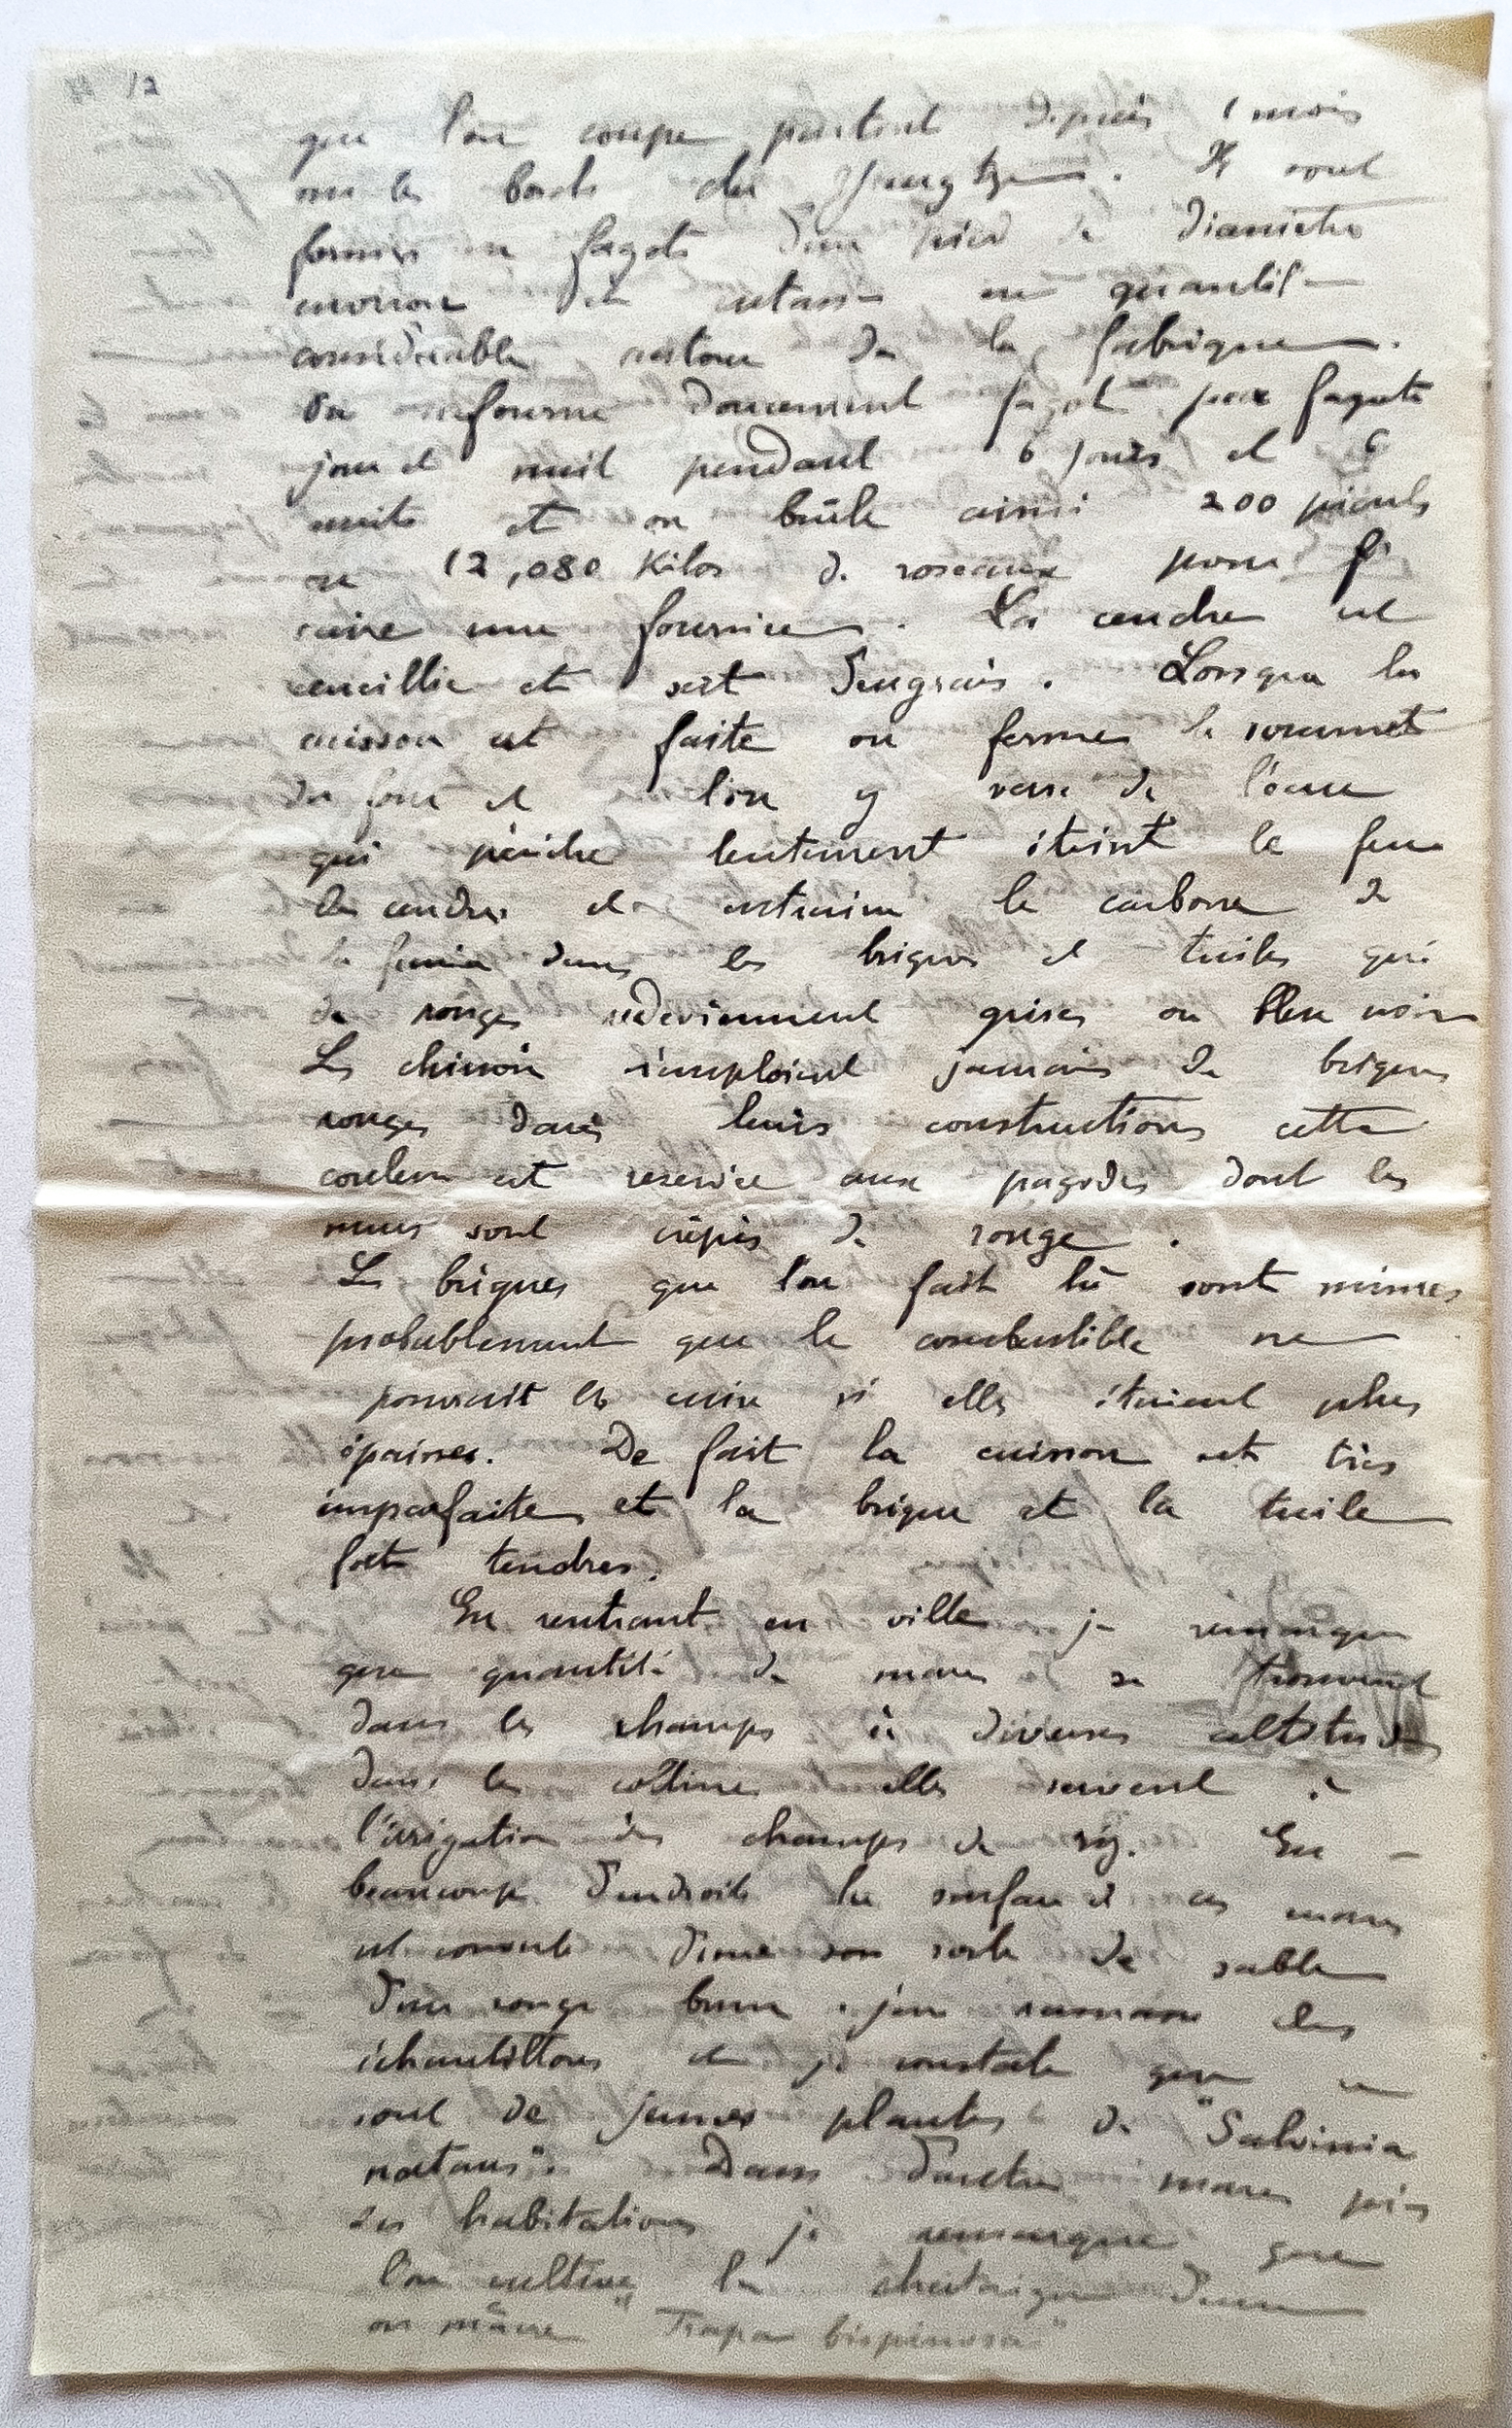 12
que l'on coupe partout depuis 1 mois
sur les bords du Yangtze. Ils sont
formés en fagots d'un pied de diametre
environ et entassés en quantité
considérable autour de la fabrique.
On enfourne doucement fagot par fagots
jour et nuit pendant 6 jours et 6
nuits et on brûle ainsi 200 piculs
ou 12,080 Kilos de roseaux pour
cuire une fournée. La cendre est
cueillie et sert d'engrais. Lorsque la
cuisson est faite on ferme le sommet
du four et l'on y verse de l'eau
qui pénètre lentement éteint le feu
les cendres et entraine le carbone de
la fumée dans les briques et tuiles qui
de rouges redeviennent grises ou bleu noir
Les chinois n'emploient jamais de briques
rouges dans leurs constructions cette
couleur est reservée aux pagodes dont les
murs sont crépis de rouge.
Les briques que l'on fait là sont minces
probablement que le combustible ne
pourrait les cuire si elles étaient plus
épaisses. De fait la cuisson est très
imparfaite et la brique et la tuile
fort tendres.
En rentrant en ville je remarque
que quantité de mares se trouvent
dans les champs à diverses altitudes
dans les collines elles servent à
l'irrigation des champs de riz. En
beaucoup d'endroits la surface de ces mares
est couverte d'une sorte de sable
d'un rouge brun. j'en ramasse des
échantillons et je constate que ce
sont de jeunes plantes de "Salvinia
natans". Dans d'autres mares près
des habitations je remarque que
l'on cultive la chataigne d'eau
ou mâcre "Trapa bispinosa"